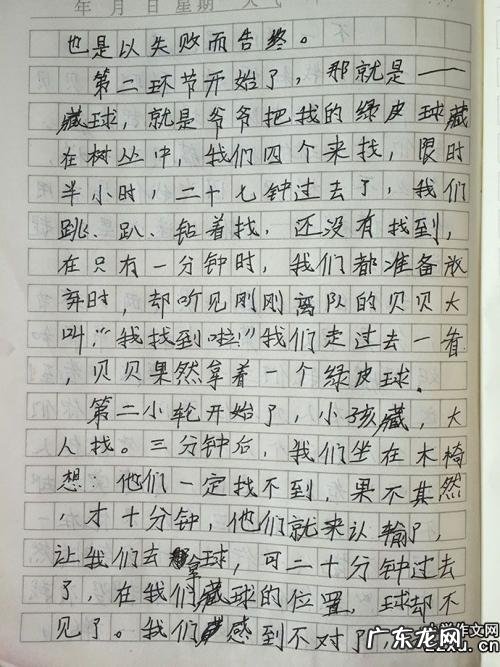 年 月 日 星期 天气
也是以失败而告终。
第二环节开始了，那就是——
藏球，就是爷爷把我的绿皮球藏
在树丛中，我们四个来找，限时
半小时，二十七钟过去了，我们
跳、趴、钻着找，还没有找到，
在只有一分钟时，我们都准备放
弃时，却听见刚刚离队的贝贝大
叫，“我找到啦！”我们走过去一看
，贝贝果然拿着一个绿皮球．
第二小轮开始了，小孩藏，大
人找。三分钟后，我们坐在木椅
想：他们一定找不到，果不其然
，才十分钟，他们就来认输了，
让我们去拿球，可二十分钟过去
了，在我们藏球的位置，球却不
见了。我们感到不对了，
广东龙网